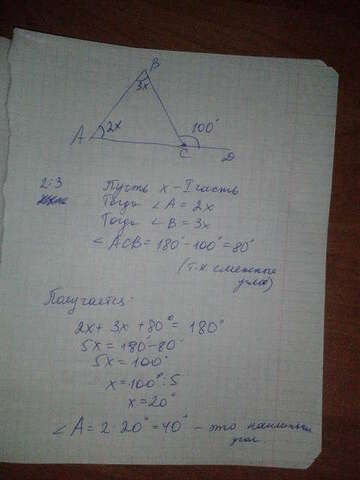 B
3x
A 2x
100°
C D
2:3
Пусть x - I часть
Тогда ∠A = 2x
Тогда ∠B = 3x
∠ACB = 180° - 100° = 80°
(т.к смежные
углы)
Получаем:
2x + 3x + 80° = 180°
5x = 180° - 80°
5x = 100°
x = 100° : 5
x = 20°
∠A = 2 · 20° = 40° - это
угол